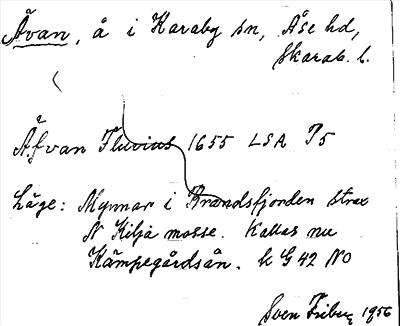 Åvan, å i Karaby sn, Åse hd,
Skarab. l.
Åfvan Fluvius 1655 LSA P5
Läge: Mynnar i Brandsfjorden strax
N Kilja mosse. Kallas nu
Kämpegårdsån. k G 42 NO
Sven Friberg 1956